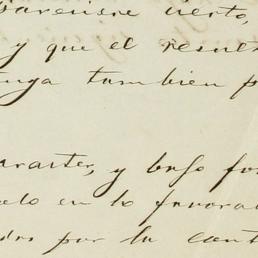 cierto,
y que el resul
nga tambien p
aracter, y bajo fo
elo en lo favora
dos por la cont